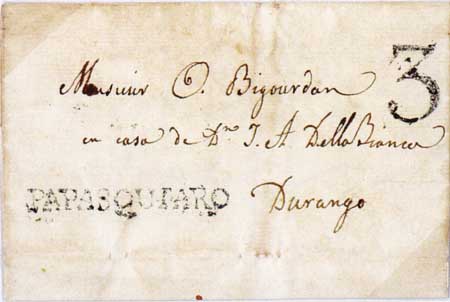 3
Monsieur O. Bigourdan
en casa de Dn. J. A. DellaBianca
PAPASQUIARO Durango